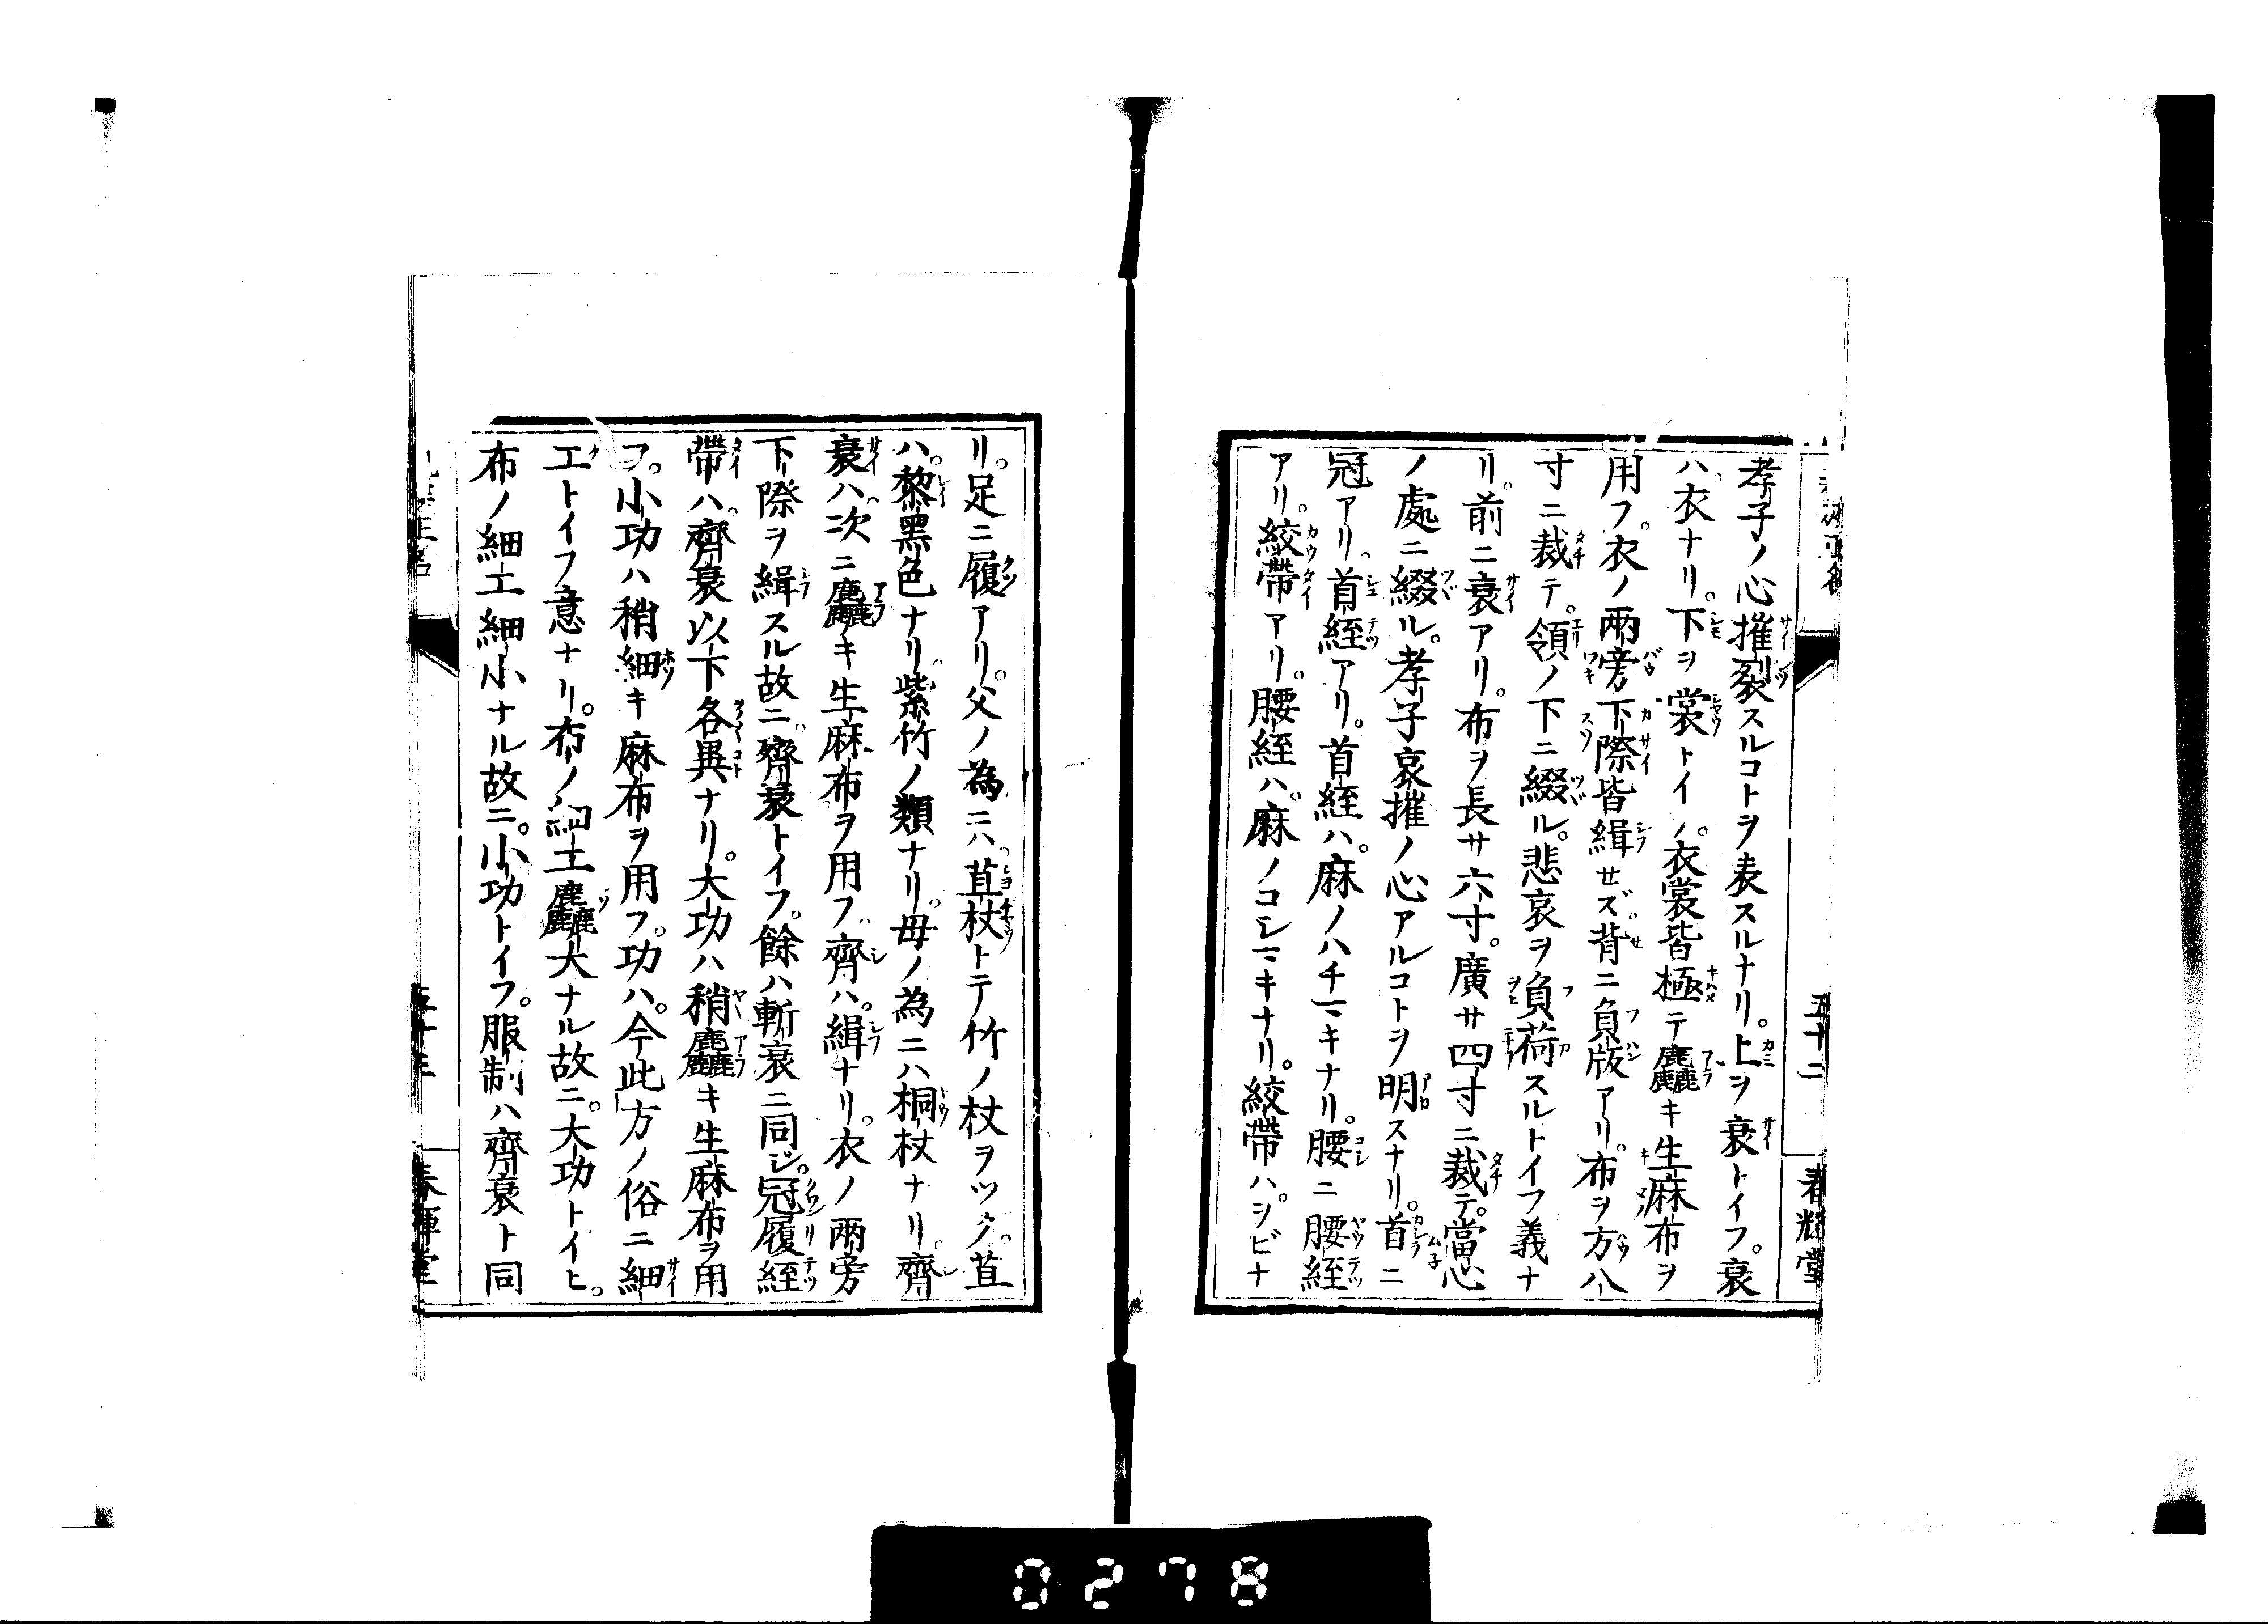 孝子ノ心摧裂スルコトヲ表スルナリ。上ヲ衰トイフ。衰
ハ。衣ナリ。下ヲ裳トイフ。衣裳皆極テ麤キ生麻布ヲ
用フ。衣ノ兩旁下際皆緝セズ。背ニ負版アリ。布ヲ方八
寸ニ裁テ。領ノ下ニ綴ル。悲哀ヲ負荷スルトイフ義ナ
リ。前ニ衰アリ。布ヲ長サ六寸。廣サ四寸ニ裁テ。當心
ノ處ニ綴ル。孝子哀摧ノ心アルコトヲ明スナリ。首ニ
冠アリ。首絰アリ。首絰ハ。麻ノハチマキナリ。腰ニ腰絰
アリ。絞帶アリ。腰絰ハ。麻ノコシマキナリ。絞帶ハ。シビナ
五十二
春輝堂
リ。足ニ履アリ。父ノ為ニハ。苴杖トテ竹ノ杖ヲツク。苴
ハ。黎黑色ナリ。紫竹ノ類ナリ。母ノ為ニハ桐杖ナリ。齊
衰ハ。次ニ麤キ生麻布ヲ用フ。齊ハ。緝ナリ。衣ノ兩旁
下際ヲ緝スル故ニ。齊衰トイフ。餘ハ斬衰ニ同ジ。冠履絰
帶ハ。齊衰以下各異ナリ。大功ハ稍麤キ生麻布ヲ用
フ。小功ハ稍細キ麻布ヲ用フ。功ハ。今此方ノ俗ニ細
工トイフ意ナリ。布ノ細工麤大ナル故ニ。大功トイヒ。
布ノ細工細小ナル故ニ。小功トイフ。服制ハ齊衰ト同
春輝堂
0278